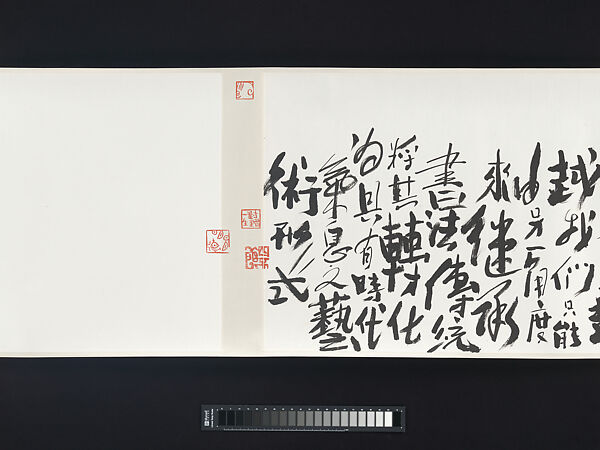 越我们只能
由另一角度
來继承
書法傳統
将其轉化
为具有時代
氣息之藝
術形式